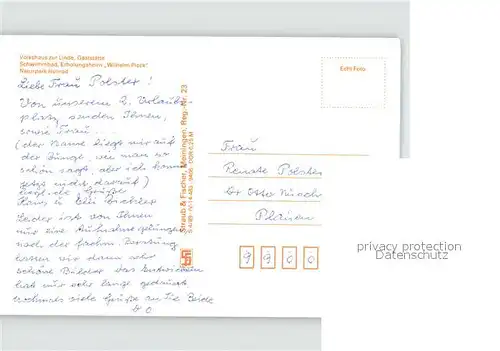 Volkshaus zur Linde, Gaststätte
Schwimmbad, Erholungsheim „Wilhelm Pieck“
Naturpark Honrad
Echt Foto
Liebe Frau Polster!
Von unserem 2. Urlaubs-
platz senden Ihnen,
sowie Frau...
(der Name liegt mir auf
der Zunge, wie man so
schön sagt, aber ich komme
jetzt nicht darauf)
herzliche Grüße
Hans u.
Leider ist von Ihnen
nur eine Aufnahme gelungen
nach der fachm. Beratung
hatten wir dann sehr
schöne Bilder das Entwickeln
hat nur sehr lange gedauert
nochmals viele Grüße an Sie Beide
Straub & Fischer, Meiningen, Reg.-Nr. 23
Frau
Renate Polster
Dr Otto Nusch
Plauen
9900
privacy protection
Datenschutz